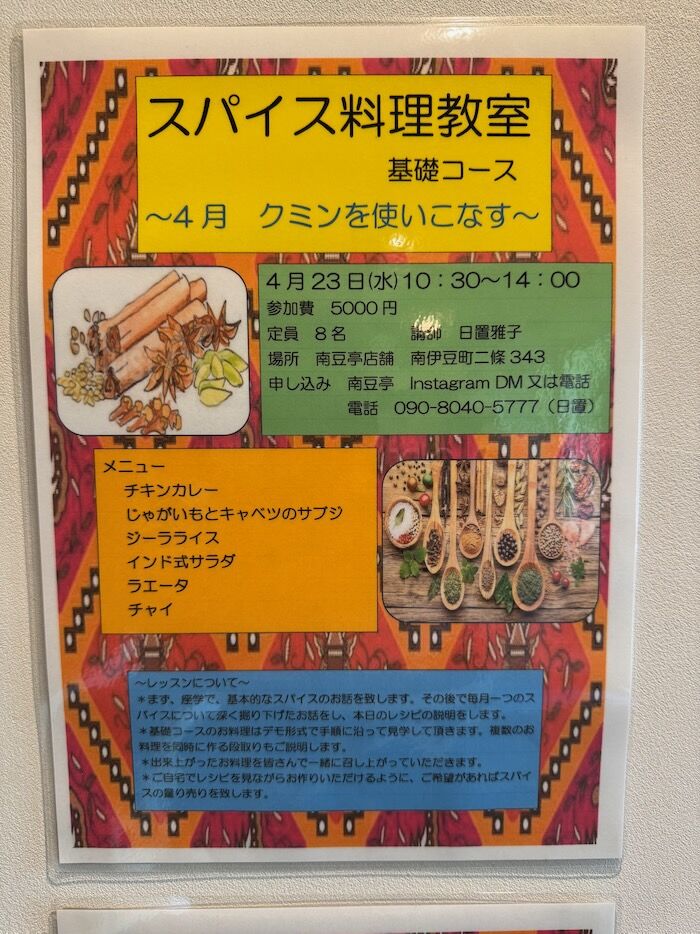 スパイス料理教室
基礎コース
～4月　クミンを使いこなす～
4月23日(水)10：30～14：00
参加費　5000円
定員　8名　講師　日置雅子
場所　南豆亭店舗　南伊豆町二條343
申し込み　南豆亭　Instagram DM又は電話
電話　090-8040-5777（日置）
メニュー
チキンカレー
じゃがいもとキャベツのサブジ
ジーラライス
インド式サラダ
ラエータ
チャイ
～レッスンについて～
＊まず、座学で、基本的なスパイスのお話を致します。その後で毎月一つのス
パイスについて深く掘り下げたお話をし、本日のレシピの説明をします。
＊基礎コースのお料理はデモ形式で手順に沿って見学して頂きます。複数のお
料理を同時に作る段取りもご説明します。
＊出来上がったお料理を皆さんで一緒に召し上がっていただきます。
＊ご自宅でレシピを見ながらお作りいただけるように、ご希望があればスパイ
スの量り売りを致します。